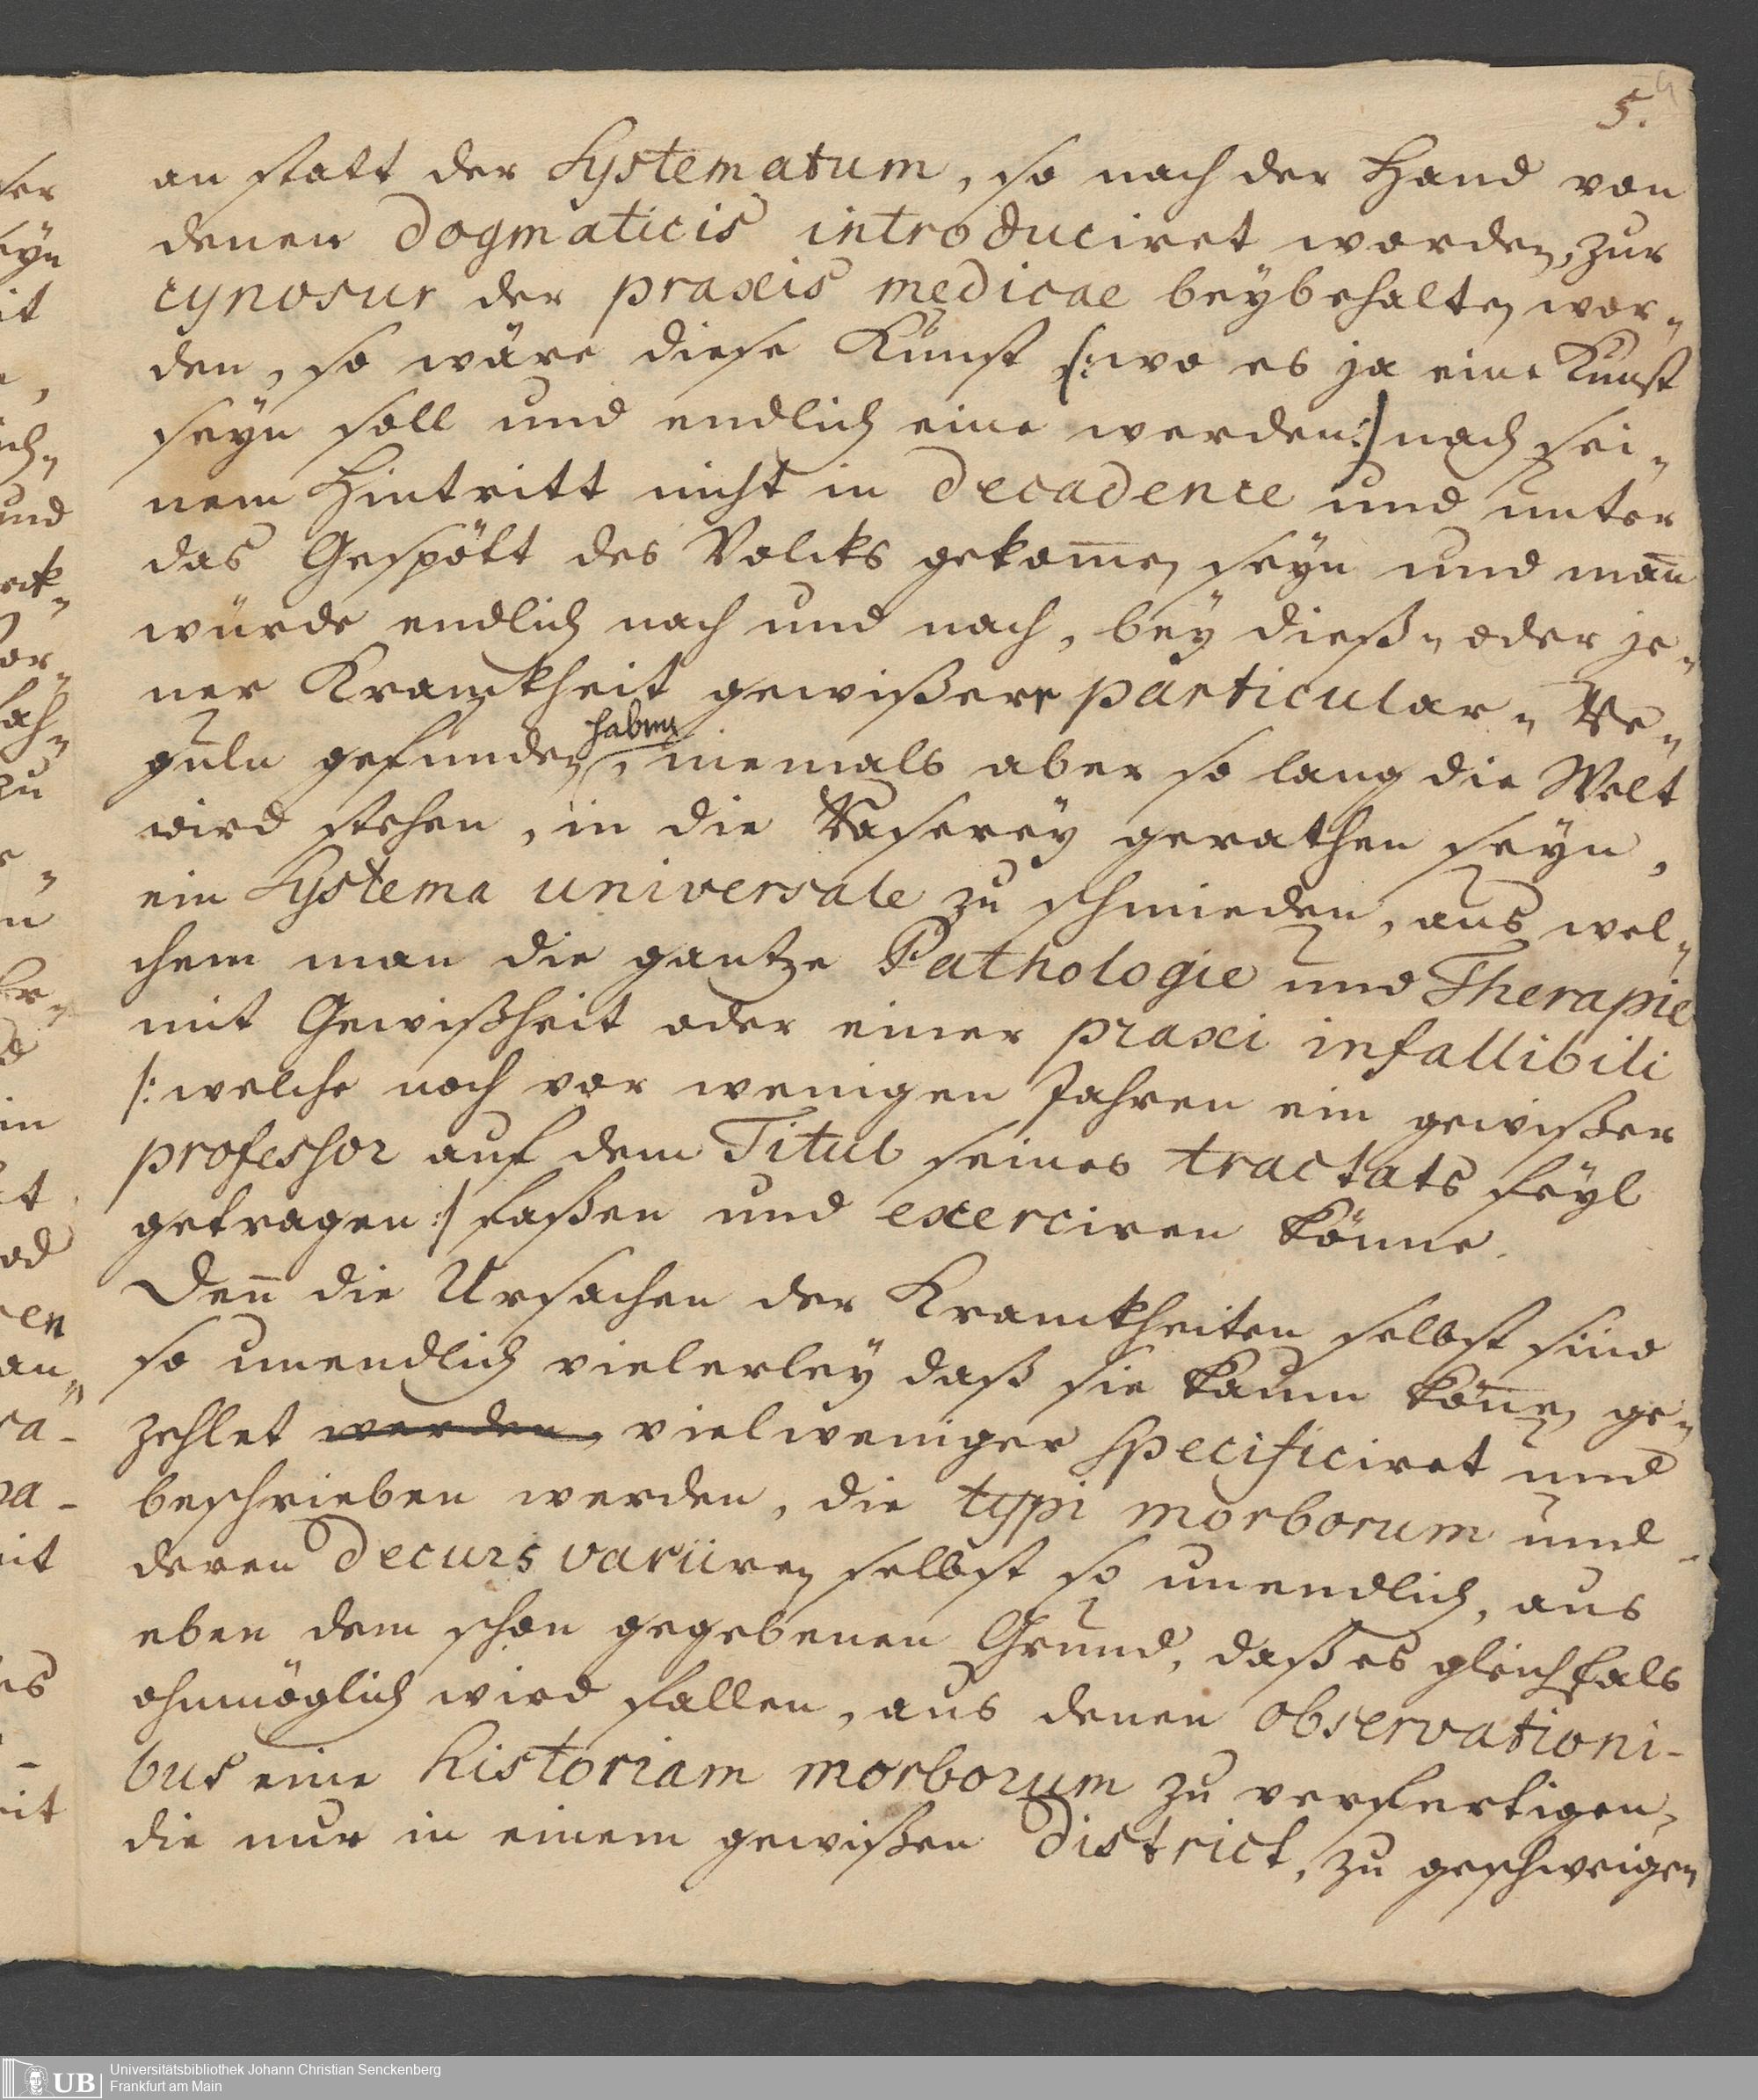 5.
an statt der Systematum, so nach der Hand von
denen Dogmaticis introduciret worden, zur
cynosur der praxis medicae beybehalten wor-
den, so wäre diese Kunst /: wo es ja eine Kunst
seyn soll und endlich eine werden :/ nach sei-
nem Hintritt nicht in decadence und unter
das Gespött des Volcks gekom̄en seyn und man̄
würde endlich nach und nach, bey dieß- oder je-
ner Kranckheit gewißere particular- Re-
guln gefunden haben, niemals aber so lang die Welt
wird stehen, in die Raserey gerathen seyn,
ein Systema universale zu schmieden, aus wel-
chem man die gantze Pathologie und Therapie
mit Gewißheit oder einer praxi infallibili
/: welche noch vor wenigen Jahren ein gewißer
professor auf dem Titul seines tractats feyl
getragen :/ faßen und exerciren könne.
Den̄ die Ursachen der Kranckheiten selbst sind
so unendlich vielerley daß sie kaum kön̄en ge-
zehlet werden, vielweniger specificiret und
beschrieben werden, die typi morborum und
deren Decurs variiren selbst so unendlich, aus
eben dem schon gegebenen Grund, daß es gleichfals
ohnmöglich wird fallen, aus denen observationi-
bus eine historiam morborum zu verfertigen,
die nur in einem gewißen District, zu geschweigen
UB
Universitätsbibliothek Johann Christian Senckenberg
Frankfurt am Main